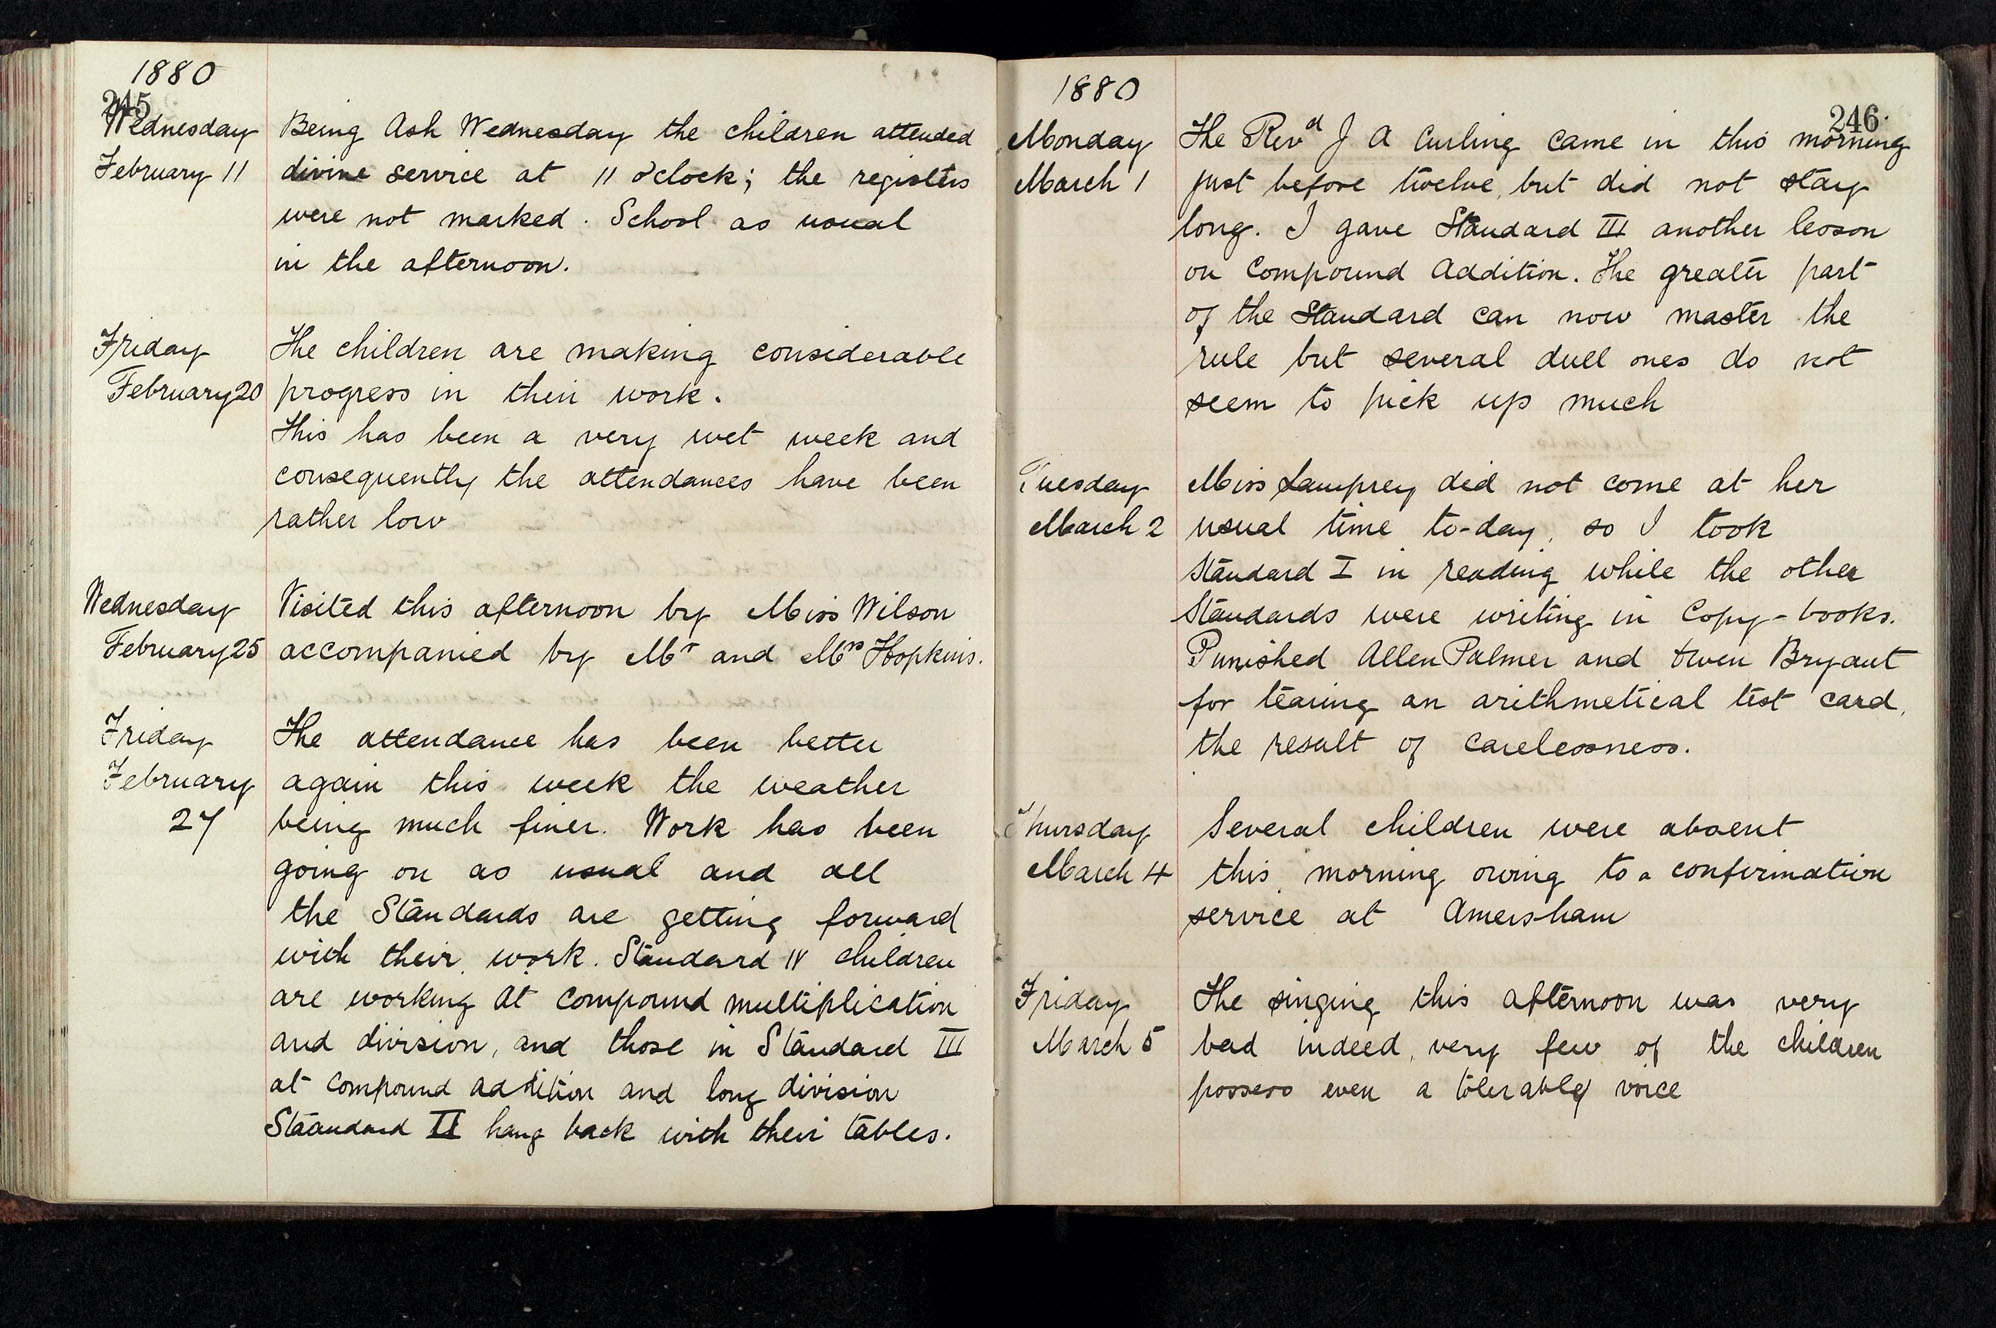 1880
245
Wednesday
February 11
Being Ash Wednesday the children attended
divine service at 11 o'clock; the registers
were not marked. School as usual
in the afternoon.
Friday
February 20
The children are making considerable
progress in their work.
This has been a very wet week and
consequently the attendances have been
rather low
Wednesday
February 25
Visited this afternoon by Miss Wilson
accompanied by Mr and Mrs Hopkins.
Friday
February
27
The attendance has been better
again this week the weather
being much finer. Work has been
going on as usual and all
the Standards are getting forward
with their work. Standard IV children
are working at compound multiplication
and division, and those in Standard III
at compound addition and long division
Staandard II hang back with their tables.
1880
246
Monday
March 1
The Revd J A Curling came in this morning
just before twelve, but did not stay
long. I gave Standard III another lesson
on Compound Addition. The greater part
of the Standard can now master the
rule but several dull ones do not
seem to pick up much
Tuesday
March 2
Miss Lamprey did not come at her
usual time to-day, so I took
Standard I in reading while the other
Standards were writing in Copy-books.
Punished Allen Palmer and Owen Bryant
for tearing an arithmetical test card,
the result of carelessness.
Thursday
March 4
Several children were absent
this morning owing to a confirmation
service at Amersham
Friday
March 5
The singing this afternoon was very
bad indeed, very few of the children
possess even a tolerably voice